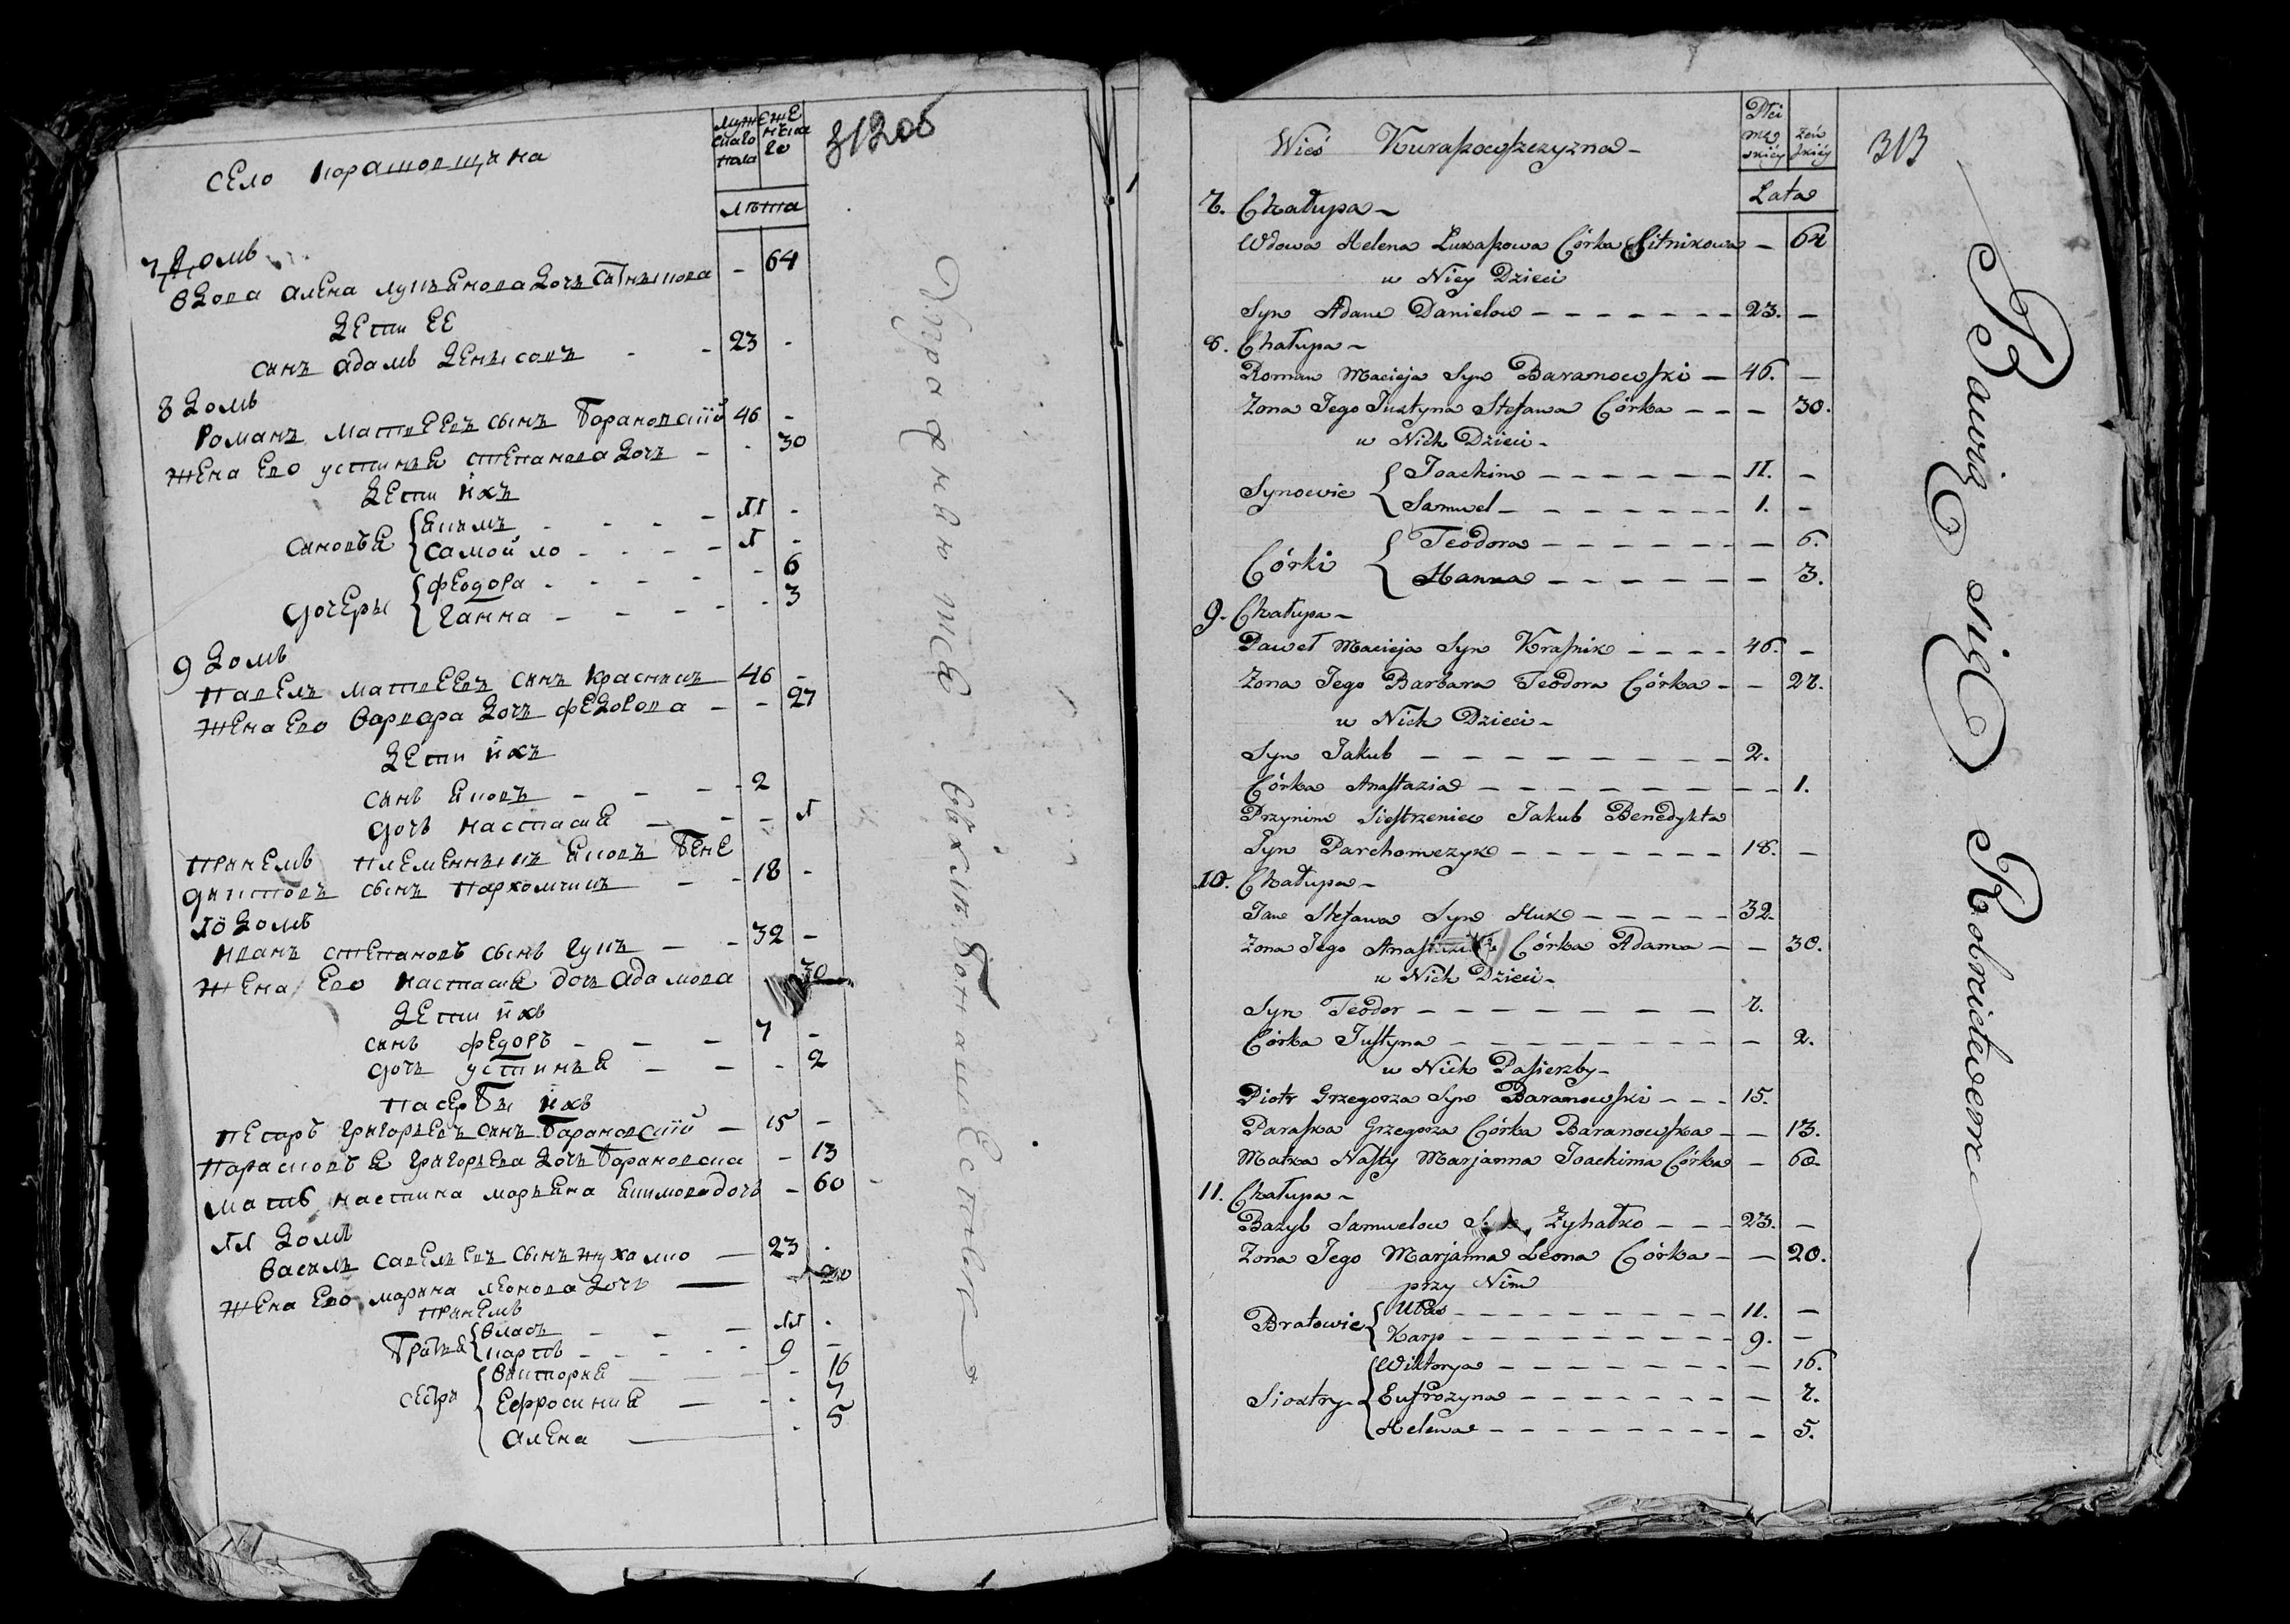 село
муж
ска­го
пола
женска
го
312об
лѣта
7 домъ
вдова алена дочъ
- 64
дети ее
синъ адамъ денисовъ - - 23 -
8 домъ
романъ матвеевъ сынъ барановскій 46 -
жена ево устинья степанова дочъ - - 30
дети ихъ
синовья { якимъ - - - - 11 -
самойло - - - - 1 -
дочеры { феодора - - - - - 6
ганна - - - - - 3
9 домъ
павелъ матвеевъ синъ красникъ 46 -
жена ево варвара дочъ федорова - - 27
дети ихъ
синъ яковъ - - - 2
дочъ настасия - - - 1
принемъ племенникъ яковъ бене
диктовъ сынъ пархомчикъ - - 18 -
10 домъ
иванъ степановъ сынъ гукъ - - 32 -
жена ево настасия дочъ адамова 30
дети ихъ
синъ федоръ - - - 7 -
дочъ устинья - - - 2
пасербы ихъ
петръ григорьевъ синъ барановскій - 15 -
парасковья григорьева дочъ барановска - 13
мать настина марьяна якимова дочъ - 60
11 домъ
василь савельевъ сынъ жухалко - 23 -
жена ево марина леонова дочъ - 20
принемъ
братья { власъ - - - 11 -
карпъ - - - - - 9 -
сестри { виктория - - - 16
ефросиния - - - 7
алена - - 5
Упрафнѧютсѧ въ хлѣбопашествѣ
Wieś Kuraszowszczyzna -
Płci
mę
skiéy
żeń
skiéy
313
Lata
7. Chałupa -
Wdowa Helena Łukaszowa Córka Sitnikowa - 64
u Niey Dzieci
Syn Adam Danielow - - - - - - - 23. -
8. Chałupa -
Roman Macieja Syn Baranowski - 46. -
Zona Jego Justyna Stefana Córka - - - 30.
u Nich Dzieci -
Synowie { Joachim - - - - - - 11. -
Samuel - - - - - - - 1. -
Córki { Teodora - - - - - - - 6.
Hanna - - - - - - - 3.
9. Chałupa -
Paweł Macieja Syn Krasnik - - - - 46. -
Zona Jego Barbara Teodora Córka - - 27.
u Nich Dzieci -
Syn Jakub - - - - - - - - - 2.
Córka Anastazia - - - - - - - - - 1.
Przynim Siestrzeniec Jakub Benedykta
Syn Parchomczyk - - - - - - - 18. -
10. Chałupa -
Jan Stefana Syn Huk - - - - - 32.
Zona Jego Córka Adama - - 30.
u Nich Dzieci -
Syn Teodor - - - - - - - - 7.
Córka Justyna - - - - - - - - - - 2.
u Nich Pasierzby -
Piotr Grzegorza Syn Baranowski - - - 15.
Paraska Grzegorza Córka Baranowska - - 13.
Matka Nasty Marjanna Joachima Córka - 60.
11. Chałupa -
Bazyl Samuelow Syn Zyhałko - - - 23. -
Zona Jego Marjanna Leona Córka - - 20.
przy Nim
Bratowie { Ułas - - - - - - - - - 11. -
Karp - - - - - - - - - 9. -
Siostry { Wiktorya - - - - - - - - 16.
Eufrozyna - - - - - - - - 7.
Helena - - - - - - - - - 5.
Bawią się Rolnictwem